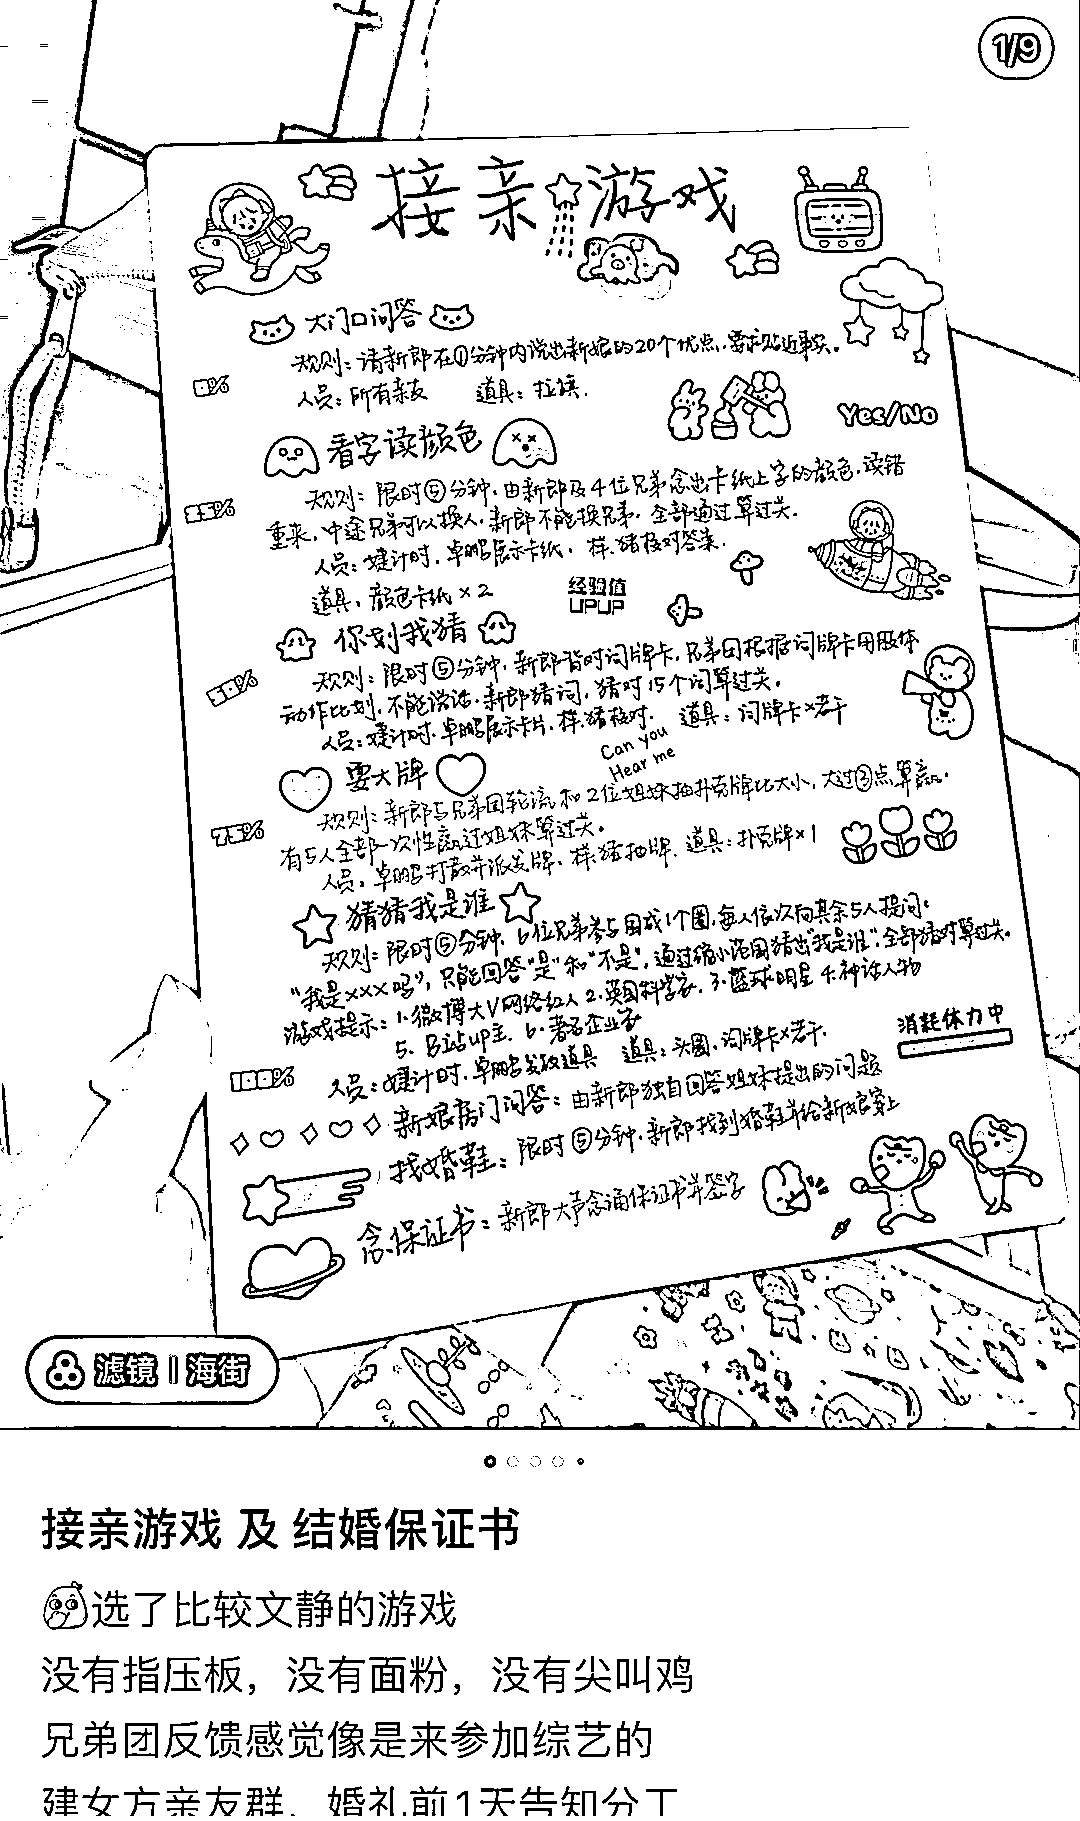 1/9
接亲游戏
大门口问答
规则：请新郎在①分钟内说出新娘的20个优点，要求贴近事实。
0%
人员：所有亲友 道具：拉横
Yes/No
看字读颜色
规则：限时⑤分钟，由新郎及4位兄弟念出卡纸上字的颜色，读错
25%
重来，中途兄弟可以换人，新郎不能换兄弟，全部通过算过关。
人员：婕计时，卓鹏展示卡纸，样、猪核对答案。
道具：颜色卡纸×2
经验值
UPUP
你划我猜
规则：限时⑤分钟，新郎背对词牌卡，兄弟团根据词牌卡用肢体
50%
动作比划，不能说话，新郎猜词，猜对15个词算过关。
人员：婕计时，卓鹏展示卡片，样、猪核对。 道具：词牌卡×若干
Can you
Hear me
耍大牌
规则：新郎与兄弟团轮流和2位姐妹抽扑克牌比大小，大过③点算赢。
75%
有5人全部一次性赢过姐妹算过关。
人员：卓鹏打散并派发牌，样、猪抽牌。道具：扑克牌×1
猜猜我是谁
规则：限时⑤分钟，6位兄弟参与围成1个圈，每人依次向其余5人提问：
“我是×××吗”，只能回答“是”和“不是”，通过缩小范围猜出“我是谁”，全部猜对算过关。
游戏提示：1.微博大V网络红人 2.英国科学家 3.篮球明星 4.神话人物
5. B站up主 6. 著名企业家
消耗体力中
100%
人员：婕计时，卓鹏发放道具 道具：头圈，词牌卡×若干
新娘房门问答：由新郎独自回答姐妹提出的问题
找婚鞋：限时⑤分钟，新郎找到婚鞋并给新娘穿上
念保证书：新郎大声念诵保证书并签字
滤镜 | 海街
接亲游戏 及 结婚保证书
选了比较文静的游戏
没有指压板，没有面粉，没有尖叫鸡
兄弟团反馈感觉像是来参加综艺的
建女方亲友群，婚礼前1天告知分工